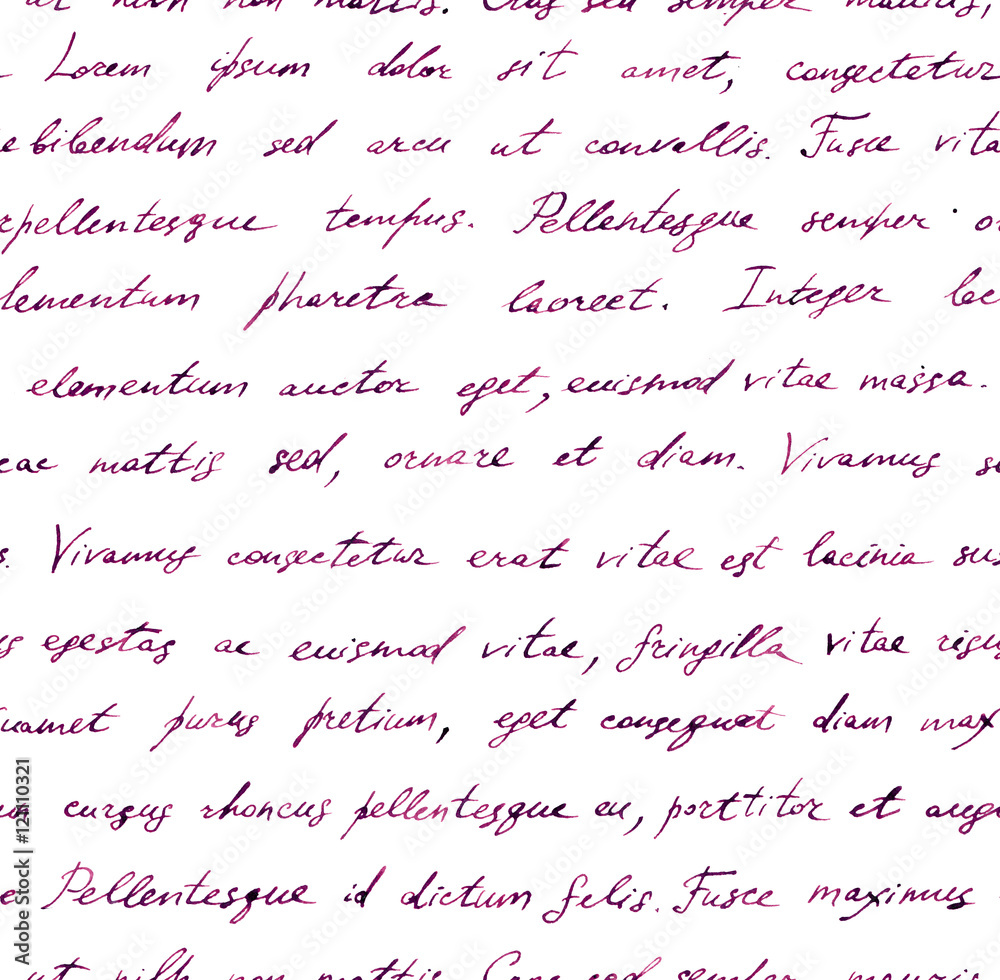 ut nibh non mattis. Cras sed semper mauris,
Lorem ipsum dolor sit amet, consectetur
e bibendum sed arcu ut convallis. Fusce vita
rpellentesque tempus. Pellentesque semper or
lementum pharetra laoreet. Integer lac
elementum auctor eget, euismod vitae massa.
cac mattis sed, ornare et diam. Vivamus se
s. Vivamus consectetur erat vitae est lacinia sus
us egestas ac euismod vitae, fringilla vitae risus
uamet purus pretium, eget consequat diam max
cursus rhoncus pellentesque eu, porttitor et augu
e Pellentesque id dictum felis. Fusce maximus
ut nibh non mattis. Cras sed semper mauris
Adobe Stock | #12410321